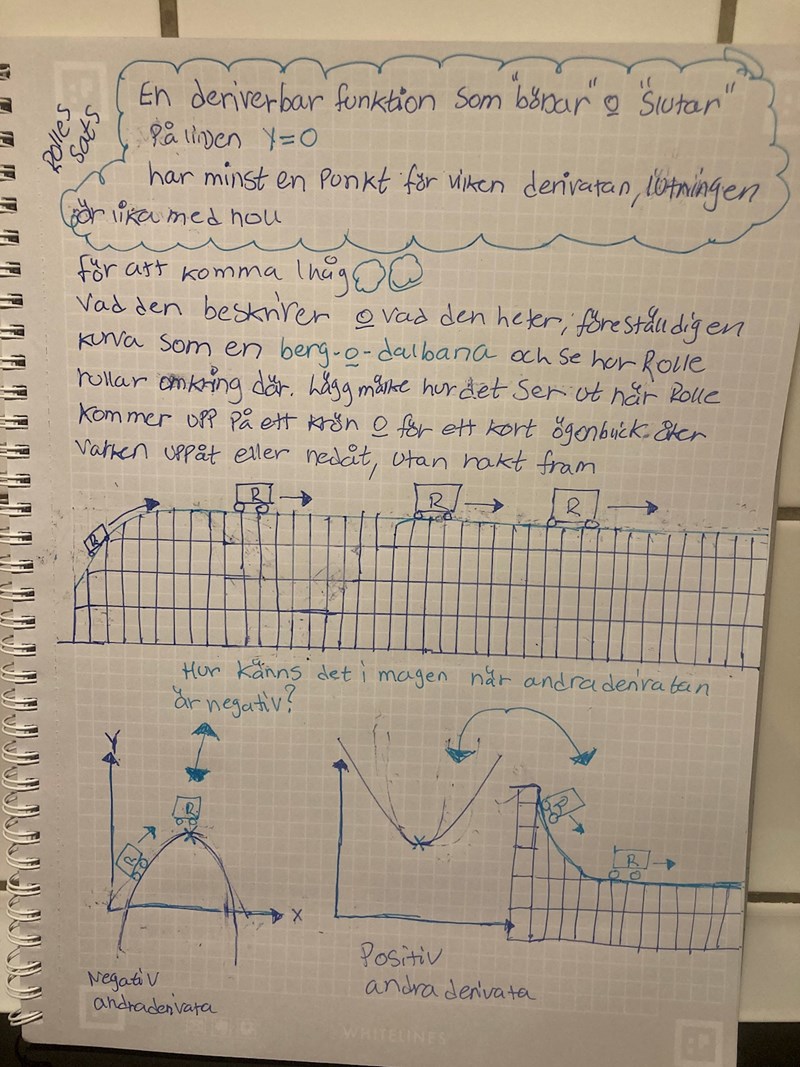 Rolles
sats
En deriverbar funktion som "börjar" o "slutar"
på linjen y=0
har minst en punkt för vilken derivatan, lutningen
är lika med noll
för att komma ihåg
vad den beskriver o vad den heter, föreställ dig en
kurva som en berg-o-dalbana och se hur Rolle
rullar omkring där. Lägg märke hur det ser ut när Rolle
kommer upp på ett krön o för ett kort ögonblick åker
varken uppåt eller nedåt, utan rakt fram
R
R
R
R
Hur känns det i magen när andraderivatan
är negativ?
Y
R
R
R
R
X
Positiv
andraderivata
Negativ
andraderivata
WHITELINES